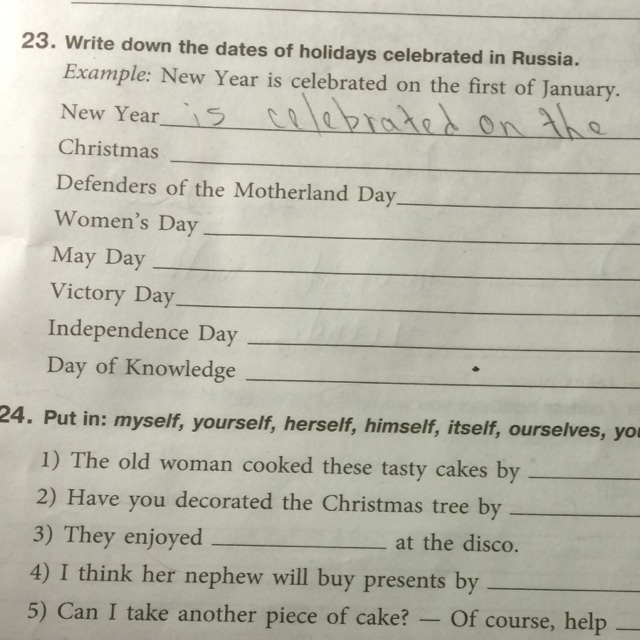 23. Write down the dates of holidays celebrated in Russia.
Example: New Year is celebrated on the first of January.
New Year is celebrated on the
Christmas
Defenders of the Motherland Day
Women's Day
May Day
Victory Day
Independence Day
Day of Knowledge
24. Put in: myself, yourself, herself, himself, itself, ourselves, you
1) The old woman cooked these tasty cakes by
2) Have you decorated the Christmas tree by
3) They enjoyed ____________ at the disco.
4) I think her nephew will buy presents by
5) Can I take another piece of cake? — Of course, help